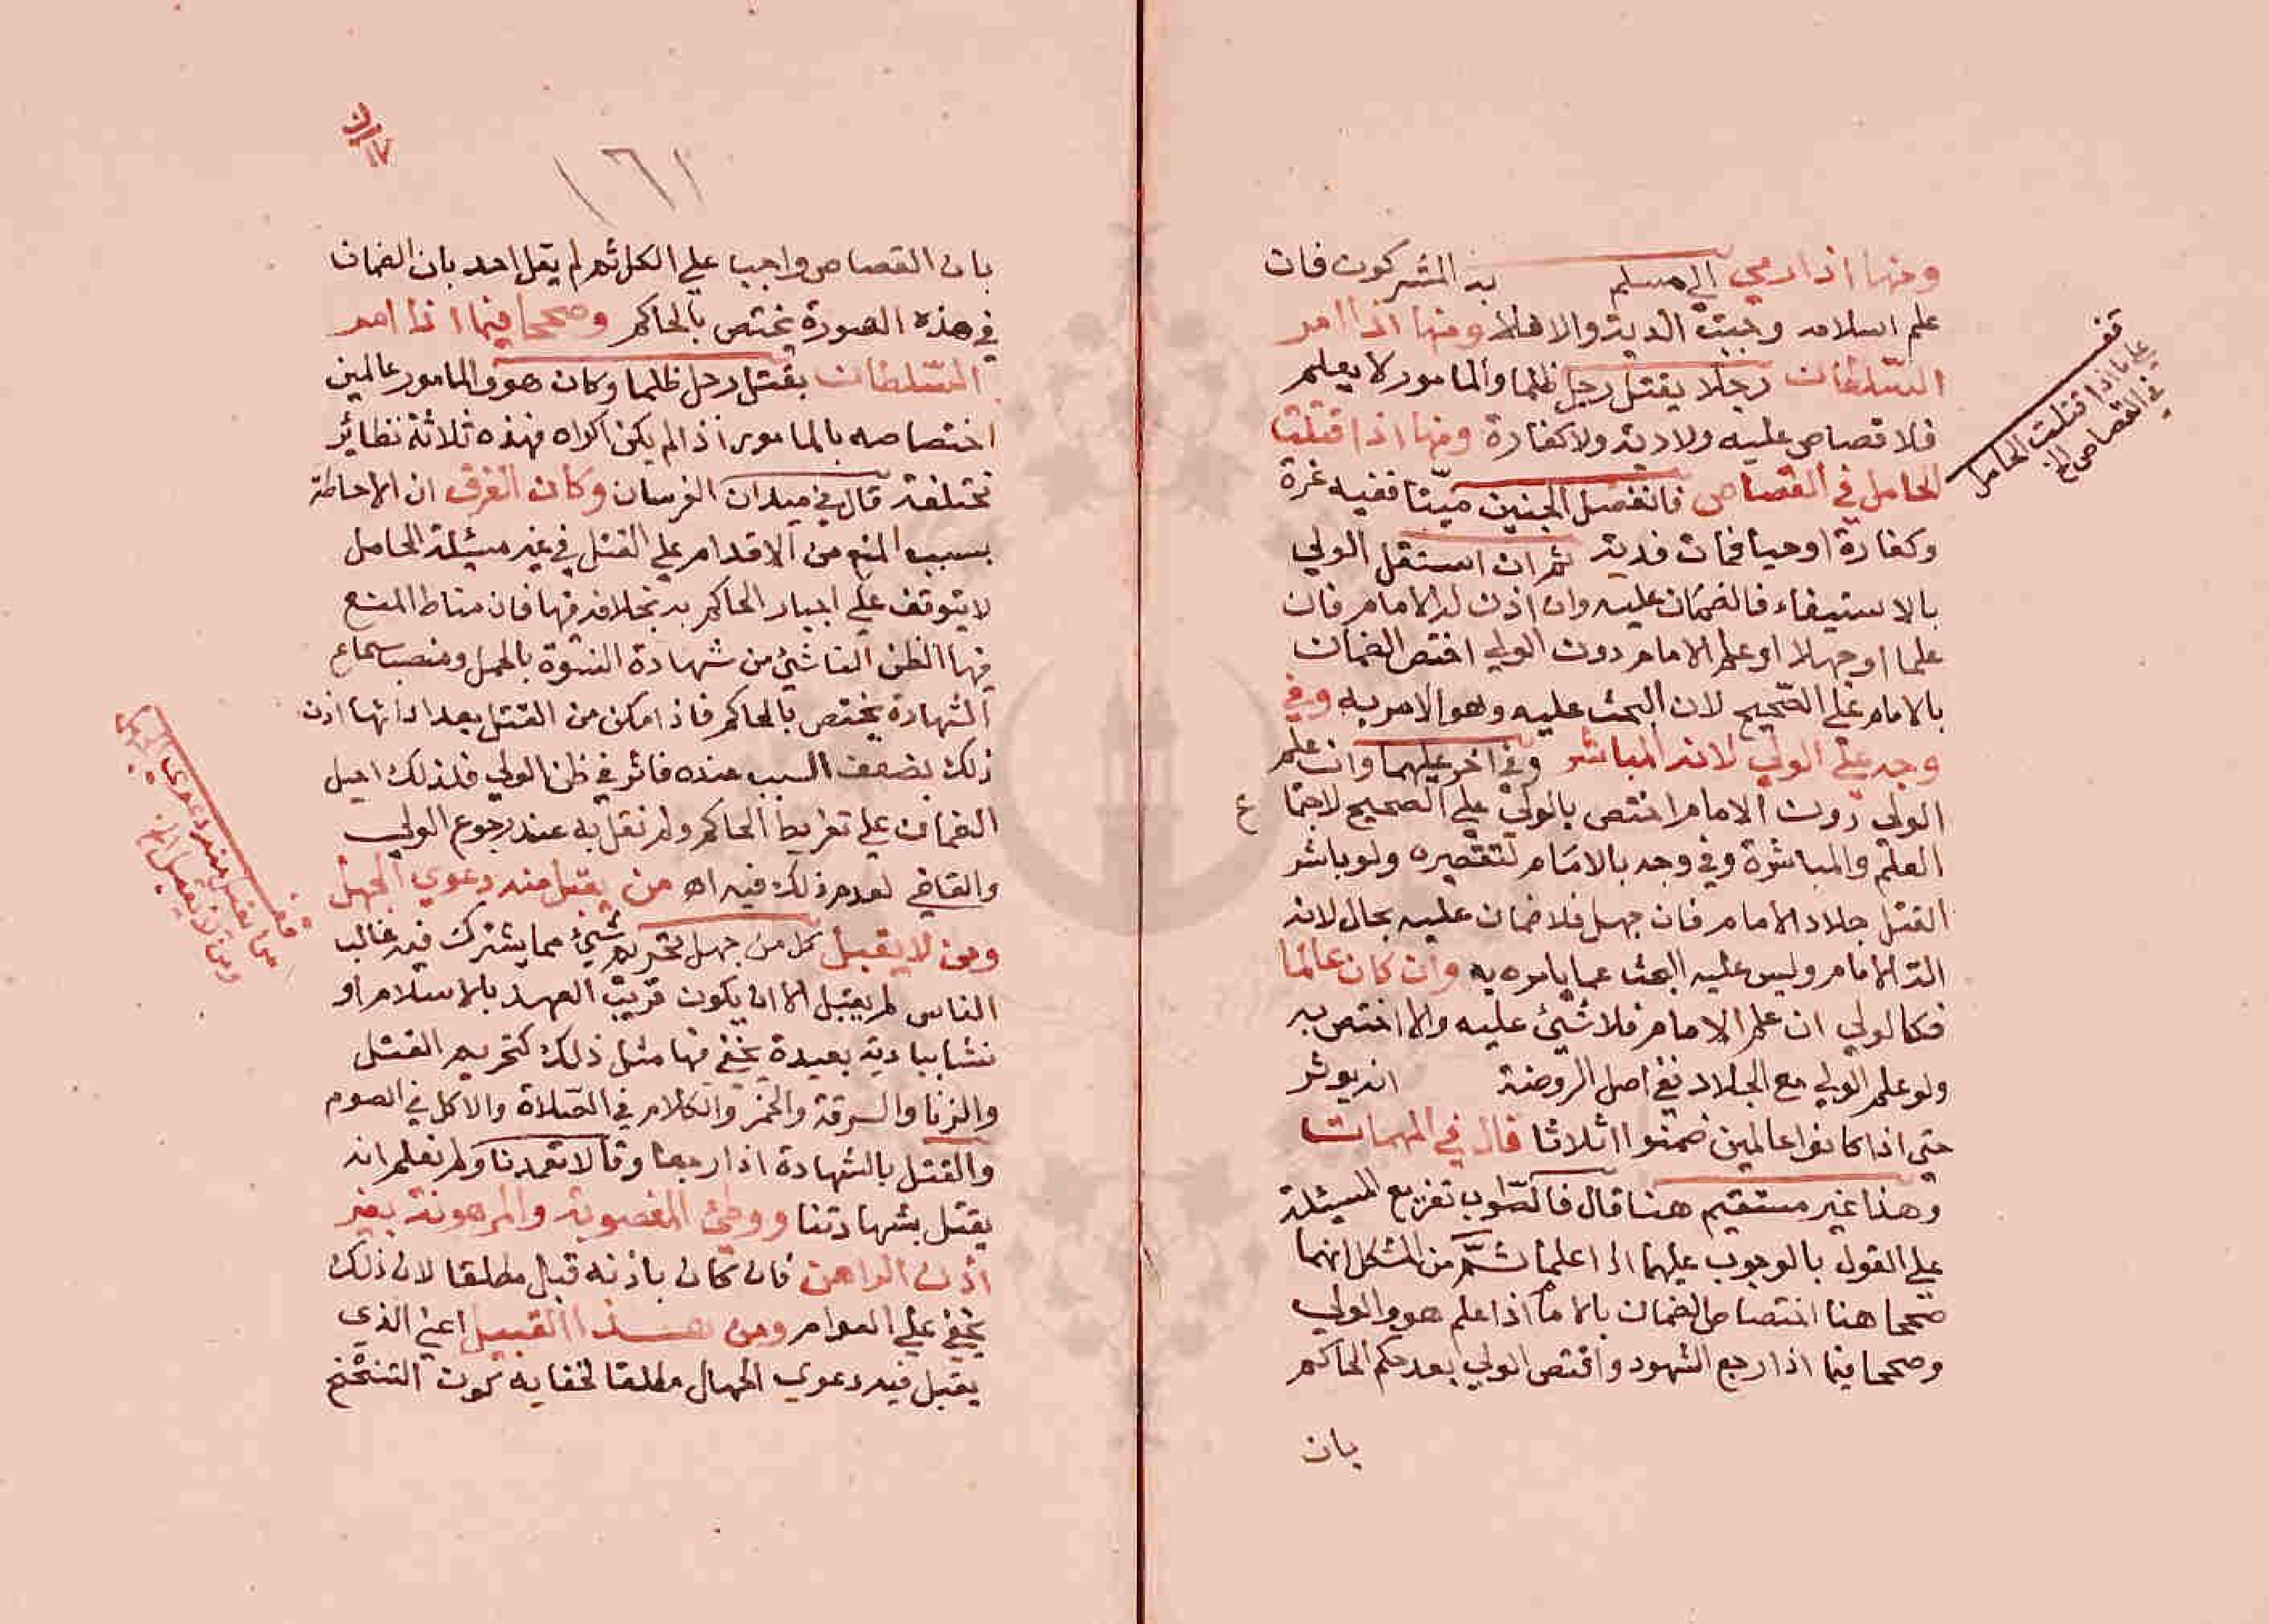 ومنها اذا رمي الي مسلم به المشركون فان
علم اسلامه وجبت الدية والا فلا ومنها اذا امر
السلطان رجلا يقتل رجل ظلما والمامور لا يعلم
فلا قصاص عليه ولا دية ولا كفارة ومنها اذا قتلت
الحامل في القصاص فانفصل الجنين ميتا ففيه غرة
وكفارة او حيا فمات فدية ثم ان استقل الولي
بالاستيفاء فالضمان عليه وان اذن له الامام فان
علما او جهلا او علم الامام دون الولي اختص الضمان
بالامام علي الصحيح لان البحث عليه وهو الامر به وفي
وجه علي الولي لانه المباشر وفي اخر عليهما وان علم
الولي دون الامام اختص بالولي علي الصحيح لاجتماع
العلم والمباشرة وفي وجه بالامام لتقصيره ولو باشر
القتل جلاد الامام فان جهل فلا ضمان عليه بحال لانه
الة الامام وليس عليه البحث عما يامره به وان كان عالما
فكالولي ان علم الامام فلا شئ عليه والا اختص به
ولو علم الولي مع الجلاد ففي اصل الروضة انه يوثر
حتي اذا كانوا عالمين ضمنوا اثلاثا قال في المهمات
وهذا غير مستقيم هنا قال فالصواب تفريع المسئلة
علي القول بالوجوب عليهما اذا علما ثم من المشكل انهما
صححا هنا اختصاص الضمان بالامام اذا علم هو والولي
وصححا فيما اذا رجع الشهود واقتص الولي بعد حكم الحاكم
بان
قف
علي ما اذا قتلت الحامل
في القصاص الخ
١٦١
بان القصاص واجب علي الكل ثم لم يقل احد بان الضمان
في هذه الصورة يختص بالحاكم وصححا فيما اذا امر
السلطان بقتل رجل ظلما وكان هو والمامور عالمين
اختصاصه بالمامور اذا لم يكن اكراه فهذه ثلاثة نظائر
مختلفة قال في ميدان الفرسان وكان الفرق ان الاحاطة
بسبب المنع من الاقدام علي القتل في غير مسئلة الحامل
لا يتوقف علي اخبار الحاكم به بخلافه فيها فان مناط المنع
فيها الظن الناشئ من شهادة النسوة بالحمل ومنصب سماع
الشهادة يختص بالحاكم فاذا مكن من القتل بعد ادائها اذن
ذلك بضعف السبب عنده فاثر في ظن الولي فلذلك احيل
الضمان علي تفريط الحاكم ولم نقل به عند رجوع الولي
والقاضي لعدم ذلك فيه اه من يقبل منه دعوي الجهل
ومن لا يقبل كل من جهل تحريم شئ مما يشترك فيه غالب
الناس لم يقبل الا ان يكون قريب العهد بالاسلام او
نشا ببادية بعيدة يخفي فيها مثل ذلك كتحريم القتل
والزنا والسرقة والخمر والكلام في الصلاة والاكل في الصوم
والقتل بالشهادة اذا رجعا وقالا تعمدنا ولم نعلم انه
يقتل بشهادتنا ووطئ المغصوبة والمرهونة بغير
اذن الراهن فان كان باذنه قبل مطلقا لان ذلك
يخفي علي العوام ومن هذا القبيل اعني الذي
يقبل فيه دعوي الجهال مطلقا لخفايه كون التنحنح
قف
من يقبل منه دعوي الجهل
ومن لا يقبل الخ